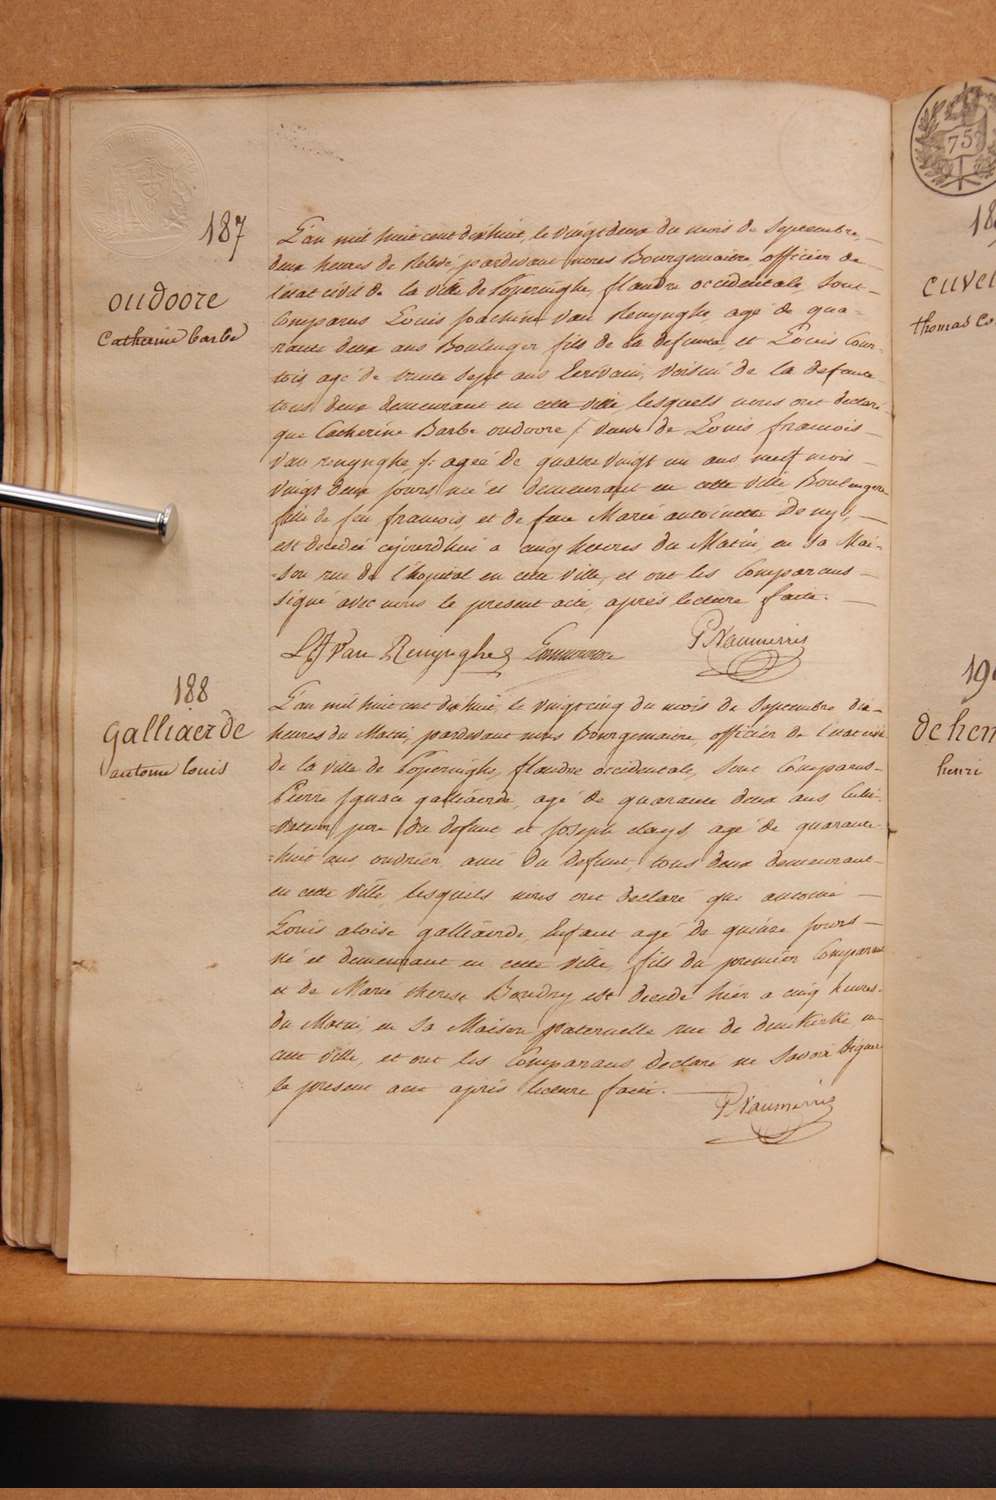 187
oudoore
Catherine barbe
L'an mil huit cent dixhuit, le vingt deux du mois de Septembre,
deux heures de Relevé, pardevant nous Bourguemaitre officier de
l'état civil de la ville de Poperinghe, flandre occidentale, sont
Comparus Louis Joachim Van Renynghe, agé de qua-
rante deux ans Boulenger fils de la defunte, et Louis Cour-
tois agé de trente sept ans Ecrivain, voisin de la defunte
tous deux demeurant en cette ville, lesquels nous ont declaré
que Catherine Barbe oudoore /: veuve de Louis francois
Van renynghe :/ agée de quatre vingt un ans neuf mois
vingt deux jours né et demeurant en cette ville Boulengere
fille de feu francois et de feue Marie antoinette
est decedée cejourdhui a cinq heures du Matin, en sa Mai-
son rue de l'hopital en cette ville, et ont les Comparans
signé avec nous le present acte, après lecture faite.
LJ Van Renynghe
188
galliaerde
antoine louis
L'an mil huit cent dixhuit, le vingt cinq du mois de Septembre dix
heures du Matin, pardevant nous Bourguemaitre, officier de l'etat civil
de la ville de Poperinghe, flandre occidentale, sont Comparus
Pierre Ignace galliaerde, agé de quarante deux ans Culti-
vateur, pere du defunt et Joseph clays agé de quarante
huit ans ouvrier, ami du defunt, tous deux demeurant
en cette ville, lesquels nous ont declaré que antoine
Louis aloise galliaerde, Enfant agé de quinze jours
né et demeurant en cette ville, fils du premier Comparant
et de Marie therese Baudry est decedé hier a cinq heures
du Matin, en sa Maison paternelle rue de dunkerke en
cette ville, et ont les Comparans declaré ne savoir signer
le present acte après lecture faite.
75
18
cuve
thomas Co
19
dehen
henri